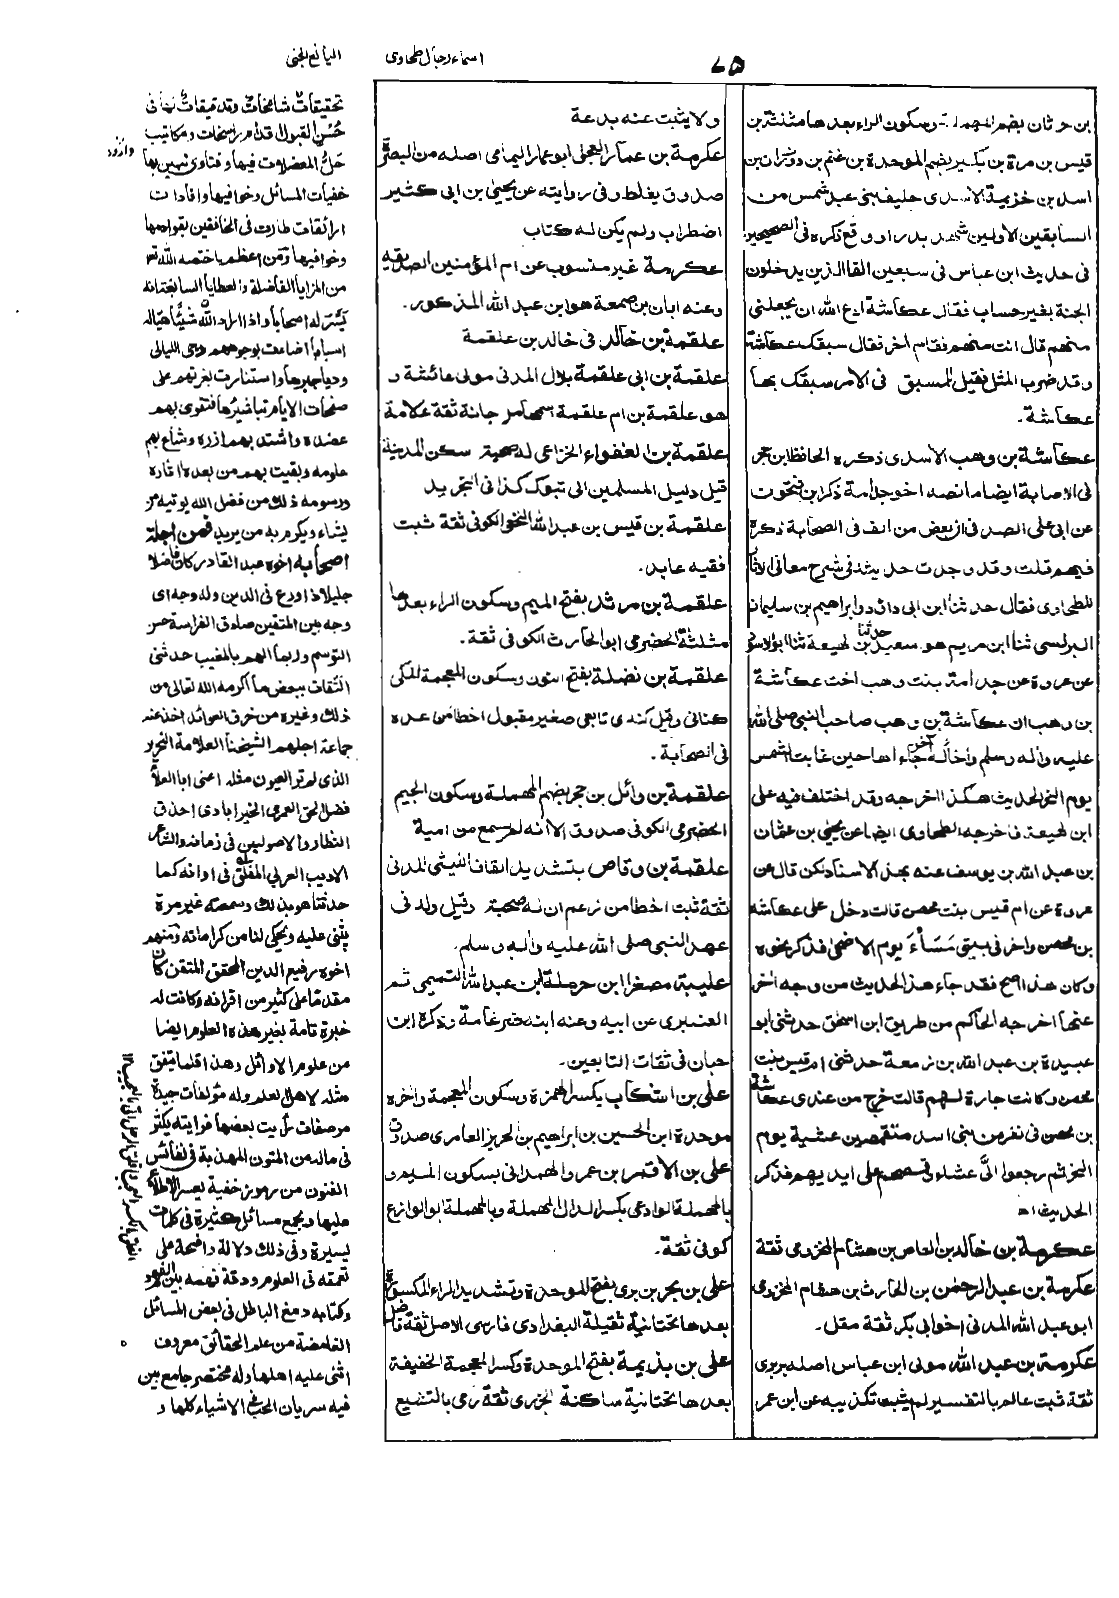 ٧٥
اسماء رجال طحاوى
اليانع الجنى
بن حرثان بضم المهملة وسكون الراء بعدها مثلثة بن
قيس بن مرة بن بكير بضم الموحدة بن غنم بن دودان بن
اسد بن خزيمة الاسدى حليف بنى عبد شمس من
السابقين الاولين شهد بدرا ووقع ذكره فى الصحيحين
فى حديث ابن عباس فى سبعين الفا الذين يدخلون
الجنة بغير حساب فقال عكاشة ادع الله ان يجعلنى
منهم قال انت منهم فقام اخر فقال سبقك عكاشة
وقد ضرب المثل فقيل للمسبق فى الامر سبقك بها
عكاشة.
عكاشة بن وهب الاسدى ذكره الحافظ ابن حجر
فى الاصابة ايضا ما نصه اخو جدامة ذكر ابن فتحون
عن ابى على الصدفى ان بعض من الف فى الصحابة ذكره
فيهم قلت وقد وجدت حديثه فى شرح معانى الاثار
للطحاوى فقال حدثنا ابن ابى داؤد وابراهيم بن سليمان
البرلسى ثنا ابن مريم هو سعيد حدثنا بن لهيعة ثنا ابو الاسود
عن عروة عن جدامة بنت وهب اخت عكاشة
بن وهب ان عكاشة بن وهب صاحب النبى صلى الله
عليه واله وسلم وأخا له آخر جاء اها حين غابت الشمس
يوم النحر الحديث هكذا اخرجه وقد اختلف فيه على
ابن لهيعة فاخرجه الطحاوى ايضا عن يحيى بن عثمان
بن عبد الله بن يوسف عنه بهذا الاسناد لكن قال عن
عروة عن ام قيس بنت محصن قالت دخل على عكاشة
بن محصن واخر فى بيتى مَسَآءَ يوم الاضحى فذكر نحوه
وكان هذا اصح فقد جاء هذا الحديث من وجه اخر
عنها اخرجه الحاكم من طريق ابن اسحق حدثنى ابو
عبيدة بن عبد الله بن زمعة حدثتنى ام قيس بنت
محصن وكانت جارة لهم قالت خرج من عندى عكاشة
بن محصن فى نفر من بنى اسد متقمصين عشية يوم
النحر ثم رجعوا الىّ عشاء وقمصهم على ايديهم فذكر
الحديث اه
عكرمة بن خالد بن العاص بن هشام المخزومى ثقة
عكرمة بن عبد الرحمٰن بن الحارث بن هشام المخزومى
ابو عبد الله المدنى اخو ابى بكر ثقة مقل.
عكرمة بن عبد الله مولى ابن عباس اصله بربرى
ثقة ثبت عالم بالتفسير لم يثبت تكذيبه عن ابن عمر
ولا يثبت عنه بدعة
عكرمة بن عمار العجلى ابو عمار اليمامى اصله من البصرة
صدوق يغلط وفى روايته عن يحيىٰ بن ابى كثير
اضطراب ولم يكن له كتاب
عكرمة غير منسوب عن ام المؤمنين الصديقة
وعنه ابان بن صمعة هو ابن عبد الله المذكور.
علقمة بن خالد فى خالد بن علقمة
علقمة بن ابى علقمة بلال المدنى مولى عائشة و
هو علقمة بن ام علقمة اسمها مرجانة ثقة علامة
علقمة بن الغفواء الخزاعى له صحبة سكن المدينة
قيل دليل المسلمين الى تبوك كذا فى التجريد
علقمة بن قيس بن عبد الله النخعى الكوفى ثقة ثبت
فقيه عابد.
علقمة بن مرثد بفتح الميم وسكون الراء بعدها
مثلثة الحضرمى ابو الحارث الكوفى ثقة.
علقمة بن نضلة بفتح النون وسكون المعجمة المكى
كنانى وقيل كندى تابعى صغير مقبول اخطأ من عده
فى الصحابة.
علقمة بن وائل بن حجر بضم المهملة وسكون الجيم
الحضرمى الكوفى صدوق الا انه لم يسمع من ابيه
علقمة بن وقاص بتشديد القاف الليثى المدنى
ثقة ثبت اخطأ من زعم ان له صحبة وقيل ولد فى
عهد النبى صلى الله عليه واله وسلم.
عليبة مصغرا ابن حرملة ابن عبد الله التميمى ثم
العنبرى عن ابيه وعنه ابنه ضرغامة وذكره ابن
حبان فى ثقات التابعين.
على بن اشكاب بكسر الهمزة وسكون المعجمة واخره
موحدة ابن الحسين بن ابراهيم بن الحر بن العامرى صدوق
على بن الاقمر بن عمرو الهمدانى بسكون الميم و
بالمهملة الوادعى بكسر الدال المهملة وبالمهملة ابو الوازع
كوفى ثقة.
على بن بحر بن برى بفتح الموحدة وتشديد الراء المكسورة
بعدها تحتانية ثقيلة البغدادى فارسى الاصل ثقة فاضل
على بن بذيمة بفتح الموحدة وكسر المعجمة الخفيفة
بعدها تحتانية ساكنة الجزرى ثقة رمى بالتشيع
تحقيقات شامخات وتدقيقات لها فى
حُسن القبول قدم راسخات ومكاتيب
حلّ المعضلات فيها وفتاوى نهين بها
خفيات المسائل وخوافيها وافادات
رائقات طارت فى الخافقين بقوادمها
وخوافيها ومن اعظم ما خصه الله تعالى
من المزايا الفاضلة والعطايا السابغة انه
كثر له اصحابا واذا اراد الله شيئًا هيأ له
اسبابا اضاءت بوجوههم دجى الليالى
ودياجيرها واستنارت بغررهم على
صفحات الايام تباشيرها فتقوى بهم
عضده واشتد بهم ازره وشاع بهم
علومه وبقيت بهم من بعده اثاره
ورسومه ذلك من فضل الله يوتيه من
يشاء ويكرم به من يريد فمن اجلة
اصحابه اخوه عبد القادر كان فاضلا
جليلا ذا ورع فى الدين وله وجه اى
وجه بين المتقين صادق الفراسة حسن
التوسم وربما الهم بالمغيب حدثنى
الثقات ببعض ما اكرمه الله تعالى من
ذلك وغيره من خرق العوائد اخذ عنه
جماعة اجلهم الشيخنا العلامة النحرير
الذى لم تر العيون مثله اعنى ابا العلاء
فضل الحق العمرى الخيرابادى احذق
النظار والاصوليين فى زمانه والشاعر
الاديب العربى المفلق فى اوانه كما
حدثنا هو بذلك وسمعته غير مرة
يثنى عليه ويحكى لنا من كراماته ومنهم
اخوه رفيع الدين المحقق المتقن كان
مقدما على كثير من اقرانه وكانت له
خبرة تامة بغير هذه العلوم ايضا
من علوم الاوائل وهذا قلما يتفق
مثله لاهل العلم وله مؤلفات جيدة
مرصفات رأيت بعضها فرايته يكثر
فى ماله من المتون المهذبة فى نفائس
الفنون من رموز خفية يعسر الاطلاع
عليها ويجمع مسائل كثيرة فى كلمات
يسيرة وفى ذلك دلالة واضحة على
تعمقه فى العلوم ودقة فهمه بين الفهوم
وكتابه دمغ الباطل فى بعض المسائل
الغامضة من علم الحقائق معروف
اثنى عليه اهلها وله مختصر جامع بين
فيه سريان الحب فى الاشياء كلها و